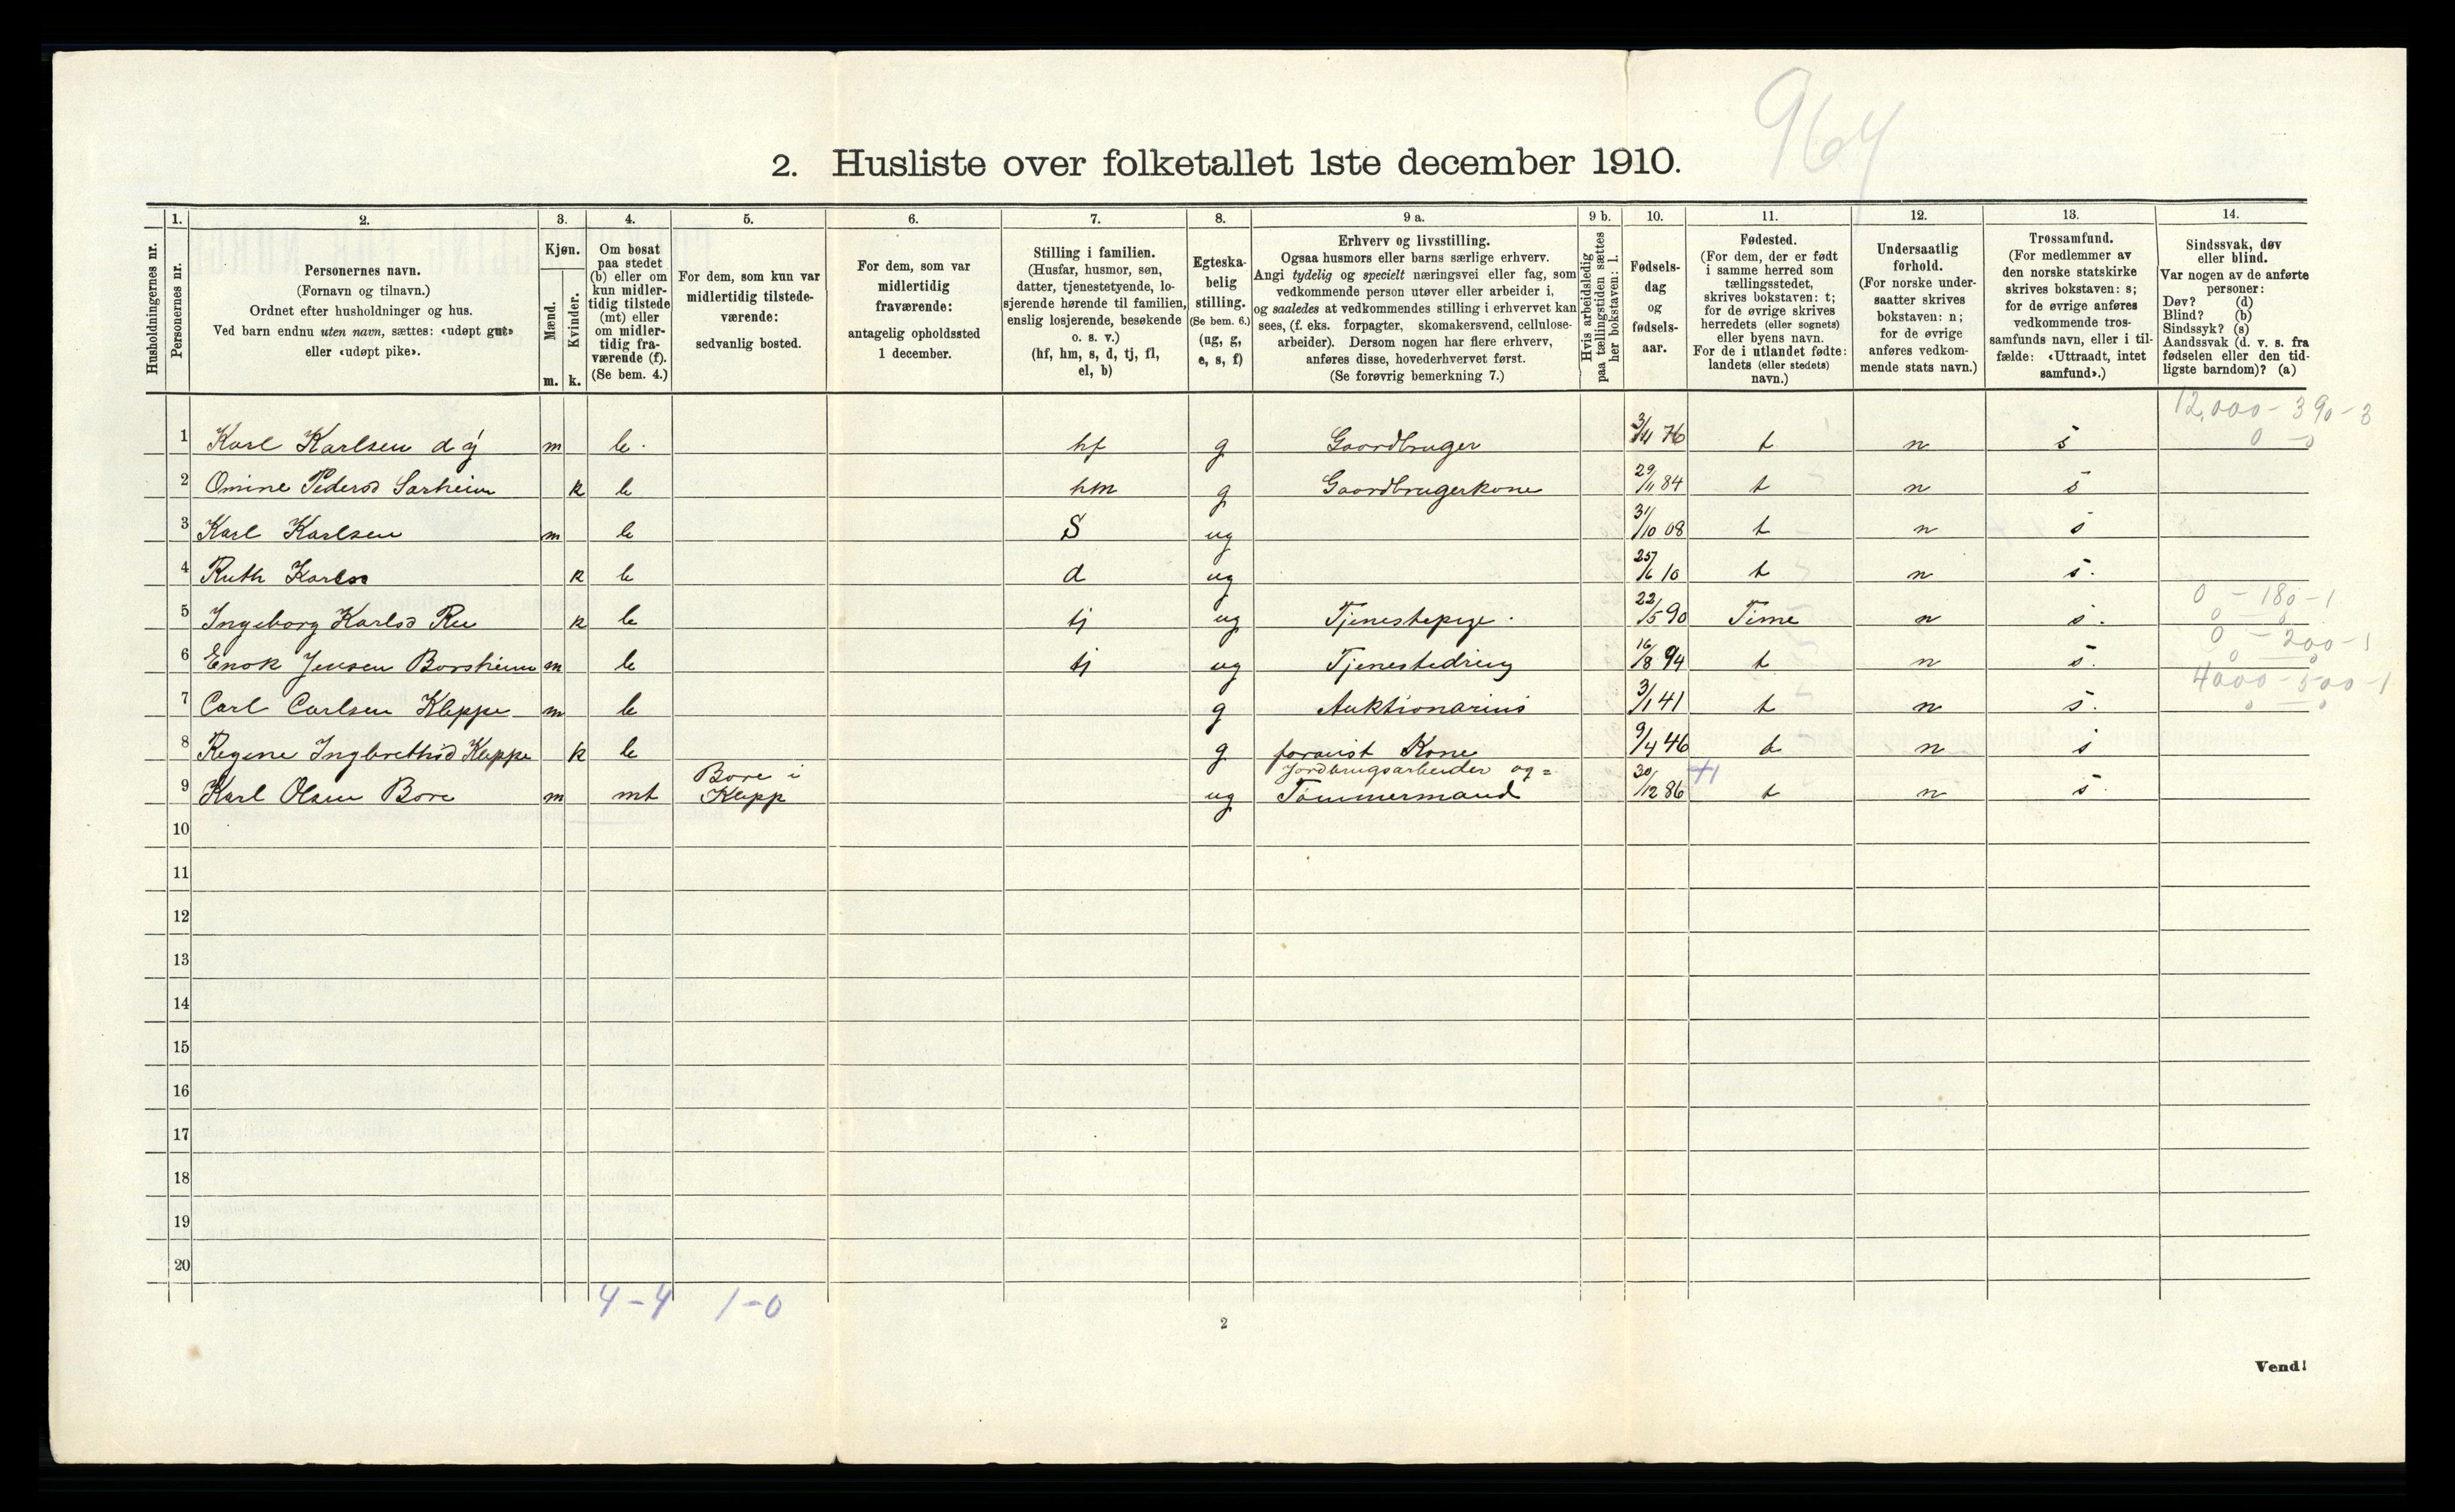 964
2. Husliste over folketallet 1ste december 1910.
Husholdningernes nr.
1. Personernes nr.
2. Personernes navn.
(Fornavn og tilnavn.)
Ordnet efter husholdninger og hus.
Ved barn endnu uten navn, sættes: «udøpt gut»
eller «udøpt pike».
3. Kjøn.
Mænd. Kvinder.
m. k.
4. Om bosat
paa stedet
(b) eller om
kun midler-
tidig tilstede
(mt) eller
om midler-
tidig fra-
værende (f).
(Se bem. 4.)
5. For dem, som kun var
midlertidig tilstede-
værende:
sedvanlig bosted.
6. For dem, som var
midlertidig
fraværende:
antagelig opholdssted
1 december.
7. Stilling i familien.
(Husfar, husmor, søn,
datter, tjenestetyende, lo-
sjerende hørende til familien,
enslig losjerende, besøkende
o. s. v.)
(hf, hm, s, d, tj, fl,
el, b)
8. Egteska-
belig
stilling.
(Se bem. 6.)
(ug, g,
e, s, f)
9 a. Erhverv og livsstilling.
Ogsaa husmors eller barns særlige erhverv.
Angi tydelig og specielt næringsvei eller fag, som
vedkommende person utøver eller arbeider i,
og saaledes at vedkommendes stilling i erhvervet kan
sees, (f. eks. forpagter, skomakersvend, cellulose-
arbeider). Dersom nogen har flere erhverv,
anføres disse, hovederhvervet først.
(Se forøvrig bemerkning 7.)
9 b. Hvis arbeidsledig
paa tællingstiden sættes
her bokstaven: l.
10. Fødsels-
dag
og
fødsels-
aar.
11. Fødested.
(For dem, der er født
i samme herred som
tællingsstedet,
skrives bokstaven: t;
for de øvrige skrives
herredets (eller sognets)
eller byens navn.
For de i utlandet fødte:
landets (eller stedets)
navn.)
12. Undersaatlig
forhold.
(For norske under-
saatter skrives
bokstaven: n;
for de øvrige
anføres vedkom-
mende stats navn.)
13. Trossamfund.
(For medlemmer av
den norske statskirke
skrives bokstaven: s;
for de øvrige anføres
vedkommende tros-
samfunds navn, eller i til-
fælde: «Uttraadt, intet
samfund».)
14. Sindssvak, døv
eller blind.
Var nogen av de anførte
personer:
Døv? (d)
Blind? (b)
Sindssyk? (s)
Aandssvak (d. v. s. fra
fødselen eller den tid-
ligste barndom)? (a)
12,000 - 390 - 3
0 - 0
1 Karl Karlsen d y m b. hf g Gaardbruger 3/11 76 t n s
2 Omine Pedersd Sarheim k b hm g Gaardbrugerkone 29/11 84 t n s
3 Karl Karlsen m b S ug 31/10 08 t n s
4 Ruth Karlsd k b d ug 25/6 10 t n s.
0 - 180 - 1
0 - 0
5 Ingeborg Karlsd Re k b tj ug Tjenestepige. 22/5 90 Time n s.
0 - 200 - 1
0 - 0
6 Enok Jensen Borsheim m b tj ug Tjenestedreng 16/8 94 t n s.
4000 - 500 - 1
0 - 0
7 Carl Carlsen Kleppe m b g Auktionarius 3/1 41 t n s.
8 Regine Ingbrethsd Kleppe k b g Kone 9/4 46 t n s
9 Karl Olsen Bore m mt Bore i Klepp ug Jordbrugsarbeider og = Tømmermand 30/12 86 t n s.
10
11
12
13
14
15
16
17
18
19
20
4-4 1-0
2
Vend!